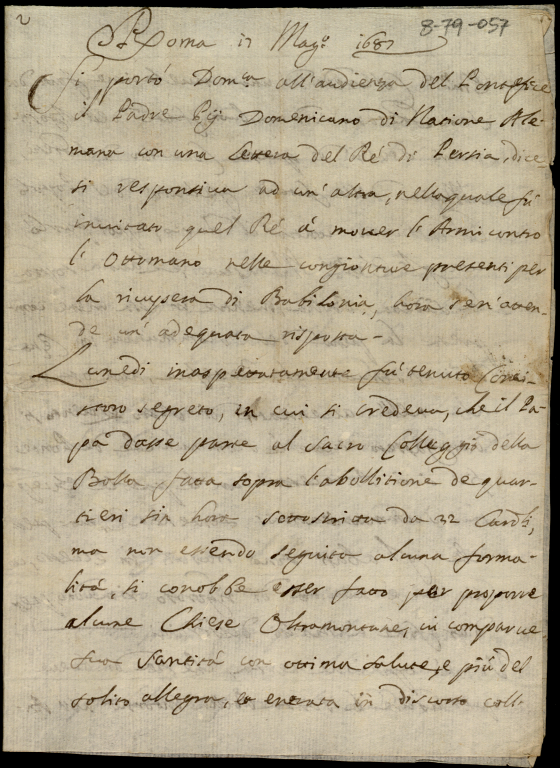 2
8-79-057
Roma 17 Mag.o 1687
Si portò Dom.ca all'audienza del Pontefice
il Padre Domenicano di Natione Ale-
mana con una lettera del Rè di Persia, dice-
si responsiva ad un'altra, nella quale fù
invitato quel Rè à mover l'Armi contro
l'Ottomano nelle congionture presenti per
la ricupera di Babilonia, hora se n'atten-
de un'adequata risposta-
Lunedì inaspettatamente fù tenuto Conci-
storo segreto, in cui si credeva, che il Pa-
pa dasse parte al Sacro Colleggio della
Bolla fatta sopra l'abollitione de quar-
tieri sin hora sottoscritta da 32 Card.li,
ma non essendo seguita alcuna forma-
lità, si conobbe esser fatto per proporre
alcune Chiese Oltramontane, vi comparve
Sua Santità con ottima salute, e più del
solito allegra, et entrata in discorso coll-